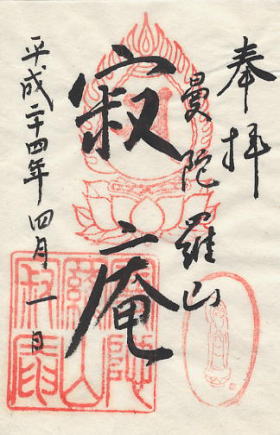 奉拝
曼陀羅山
寂庵
平成二十四年四月一日